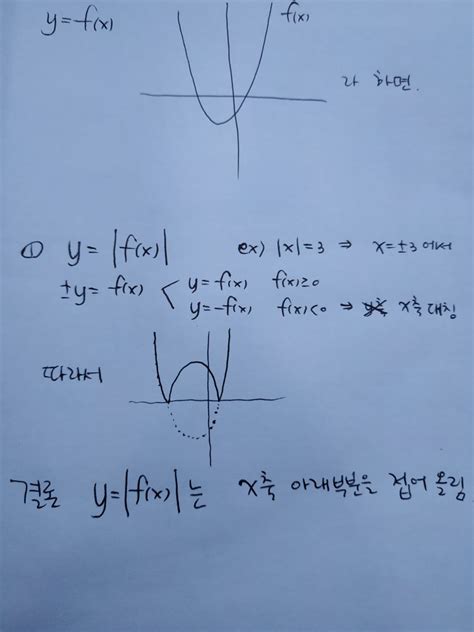 y=f(x)
f(x)
라 하면.
① y=|f(x)| ex) |x|=3 ⇒ x=±3 에서
±y= f(x) < y=f(x) f(x)≥0
y=-f(x) f(x)<0 ⇒ x축 대칭
따라서
결론 y=|f(x)|는 x축 아래부분을 접어 올림